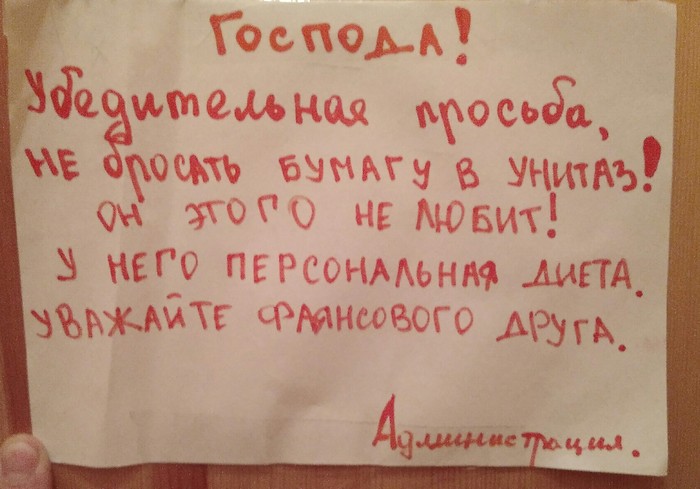 Господа!
Убедительная просьба,
не бросать бумагу в унитаз!
Он этого не любит!
У него персональная диета.
Уважайте фаянсового друга.
Администрация.